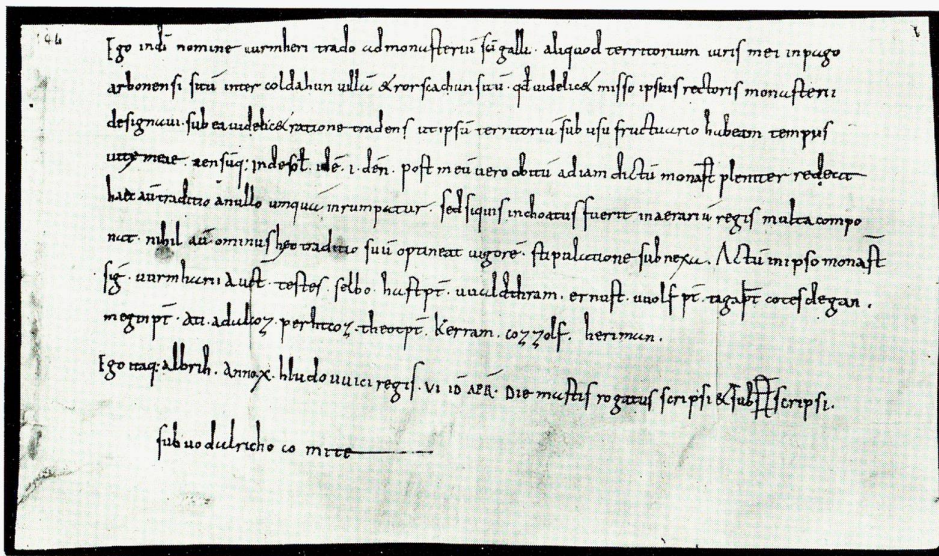 144
Ego indi nomine uurmheri trado ad monasteriū sci galli · aliquod territorium iuris mei in pago
arbonensi sitū inter coldahun uillā & rorscachun suū · qđ uidelic& misso ipsius rectoris monasterii
designaui · sub ea uidelic& ratione tradens ut ipsū territoriū sub usu fructuario habeam tempus
uitę meae censūq; inde sol idē · i · deñ · post meū uero obitū ad iam dictū monast pleniter redeat
haec aū traditio a nullo umquā inrumpatur · sed siquis inchoatus fuerit in aerariū regis multa compo
nat · nihil aū ominus hec traditio suū optineat uigorē · stipulatione subnexa · Actū in ipso monast
sig · uurmharii aust · testes · selbo · hastpt · uualdthram · ernust · uuolfpt · ragapt cotesdegan ·
meginpt · ati · adalloz · perhtcoz · theotpt · kerram · cozzolf · heriman ·
Ego itaq; albrih · anno x · hludouuici regis · VI ID APR · Die martis rogatus scripsi & subscripsi ·
sub uodalricho comite